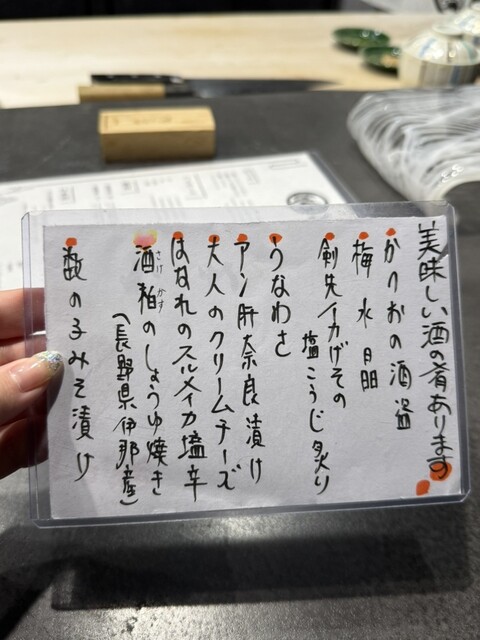 美味しい酒の肴あります
かつおの酒盗
梅水晶
剣先イカげその
塩こうじ炙り
うなわさ
アン肝奈良漬け
大人のクリームチーズ
はなれのスルメイカ塩辛
酒粕のしょうゆ焼き
さけかす
(長野県伊那産)
数の子みそ漬け